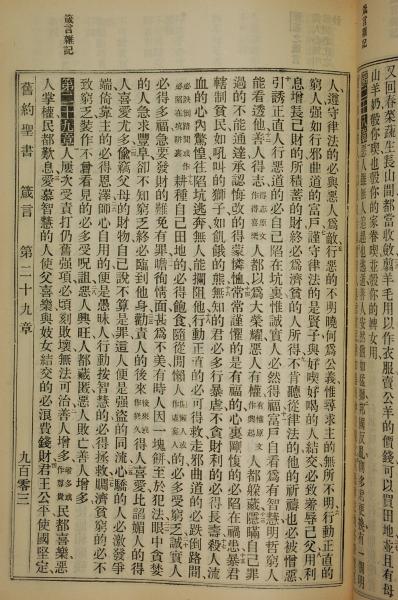 箴言雜記
又回春菜蔬生長山間都當收斂綿羊毛用以作衣服賣公羊的價錢可以買田地並且有母
山羊奶彀你喫也彀你的家眷喫並彀你的婢女用
箴言雜記
人、遵守律法的必與惡人爲敵行惡的不明曉何爲公義惟尋求主的無所不明行動正直的
窮人強如行邪曲道的富戶謹守律法的是賢子與好喫好喝的人結交必致羞辱己父用利
息增長己財的所積蓄的財終必爲濟貧的人所得不肯聽從律法的他的祈禱也必被憎惡
引誘正直人行惡道的必自己陷在坑裏惟誠實人必然得福富戶自看爲有智慧明哲窮人
能看透他善人得志得志原文作得喜樂人都以爲大榮耀惡人有權有權原文作興起人都躲藏隱瞞自己罪
過的不能通達承認悔改的得蒙憐恤常常謹懼的是有福的心裏剛愎的必陷在禍患暴君
轄制貧民如吼叫的獅子如飢餓的熊無知的君必多行暴虐不貪財利的必得長壽殺人流
血的心內驚惶往陷坑逃奔無人能攔阻他行動正直的必可得救走邪曲道的必跌倒路間
必跌倒路間或作必陷在坑裏耕種自己田地的必得飽食隨從閒懶人的必多受窮乏誠實人
必得多福急妄發財的難免有罪瞻徇情面甚爲不美有時人因一塊餅至於犯法眼中貪婪
的人急求豐阜卻不知窮乏終必臨到他身勸責人的後來後來或作終久得人喜愛比諂媚人的得
人喜愛尤多偷竊父母的財物自己說不算是罪這人便是强盜的同流心驕的人必激發爭
端倚靠主的必得恩澤師心自用的便是愚昧人行動按智慧的必得拯救賙濟貧窮的必不
致窮乏裝作不曾看見的必多受呪詛惡人興旺人都藏匿惡人敗亡善人增多
第二十九章人屢次受責打仍舊强項必頃刻敗壞無法可治善人增多增多或作得權民都喜樂惡
人掌權民都歎息愛慕智慧的人使父喜樂與妓女結交的必浪費錢財君王公平使國堅定
舊約聖書 箴言 第二十九章 九百零三